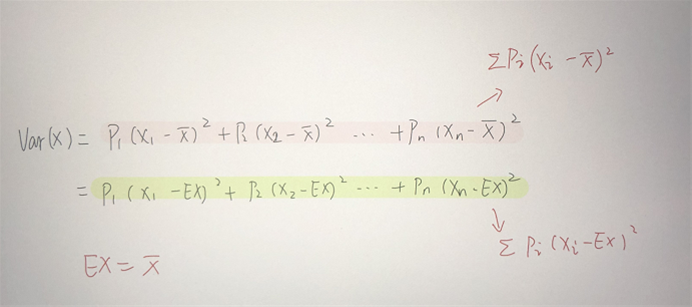 ΣPi(xi - x̄)²
Var(x) = P₁(x₁ - x̄)² + P₂(x₂ - x̄)² ... + Pn(xn - x̄)²
= P₁(x₁ - EX)² + P₂(x₂ - EX)² ... + Pn(xn - EX)²
ΣPi(xi - EX)²
EX = x̄